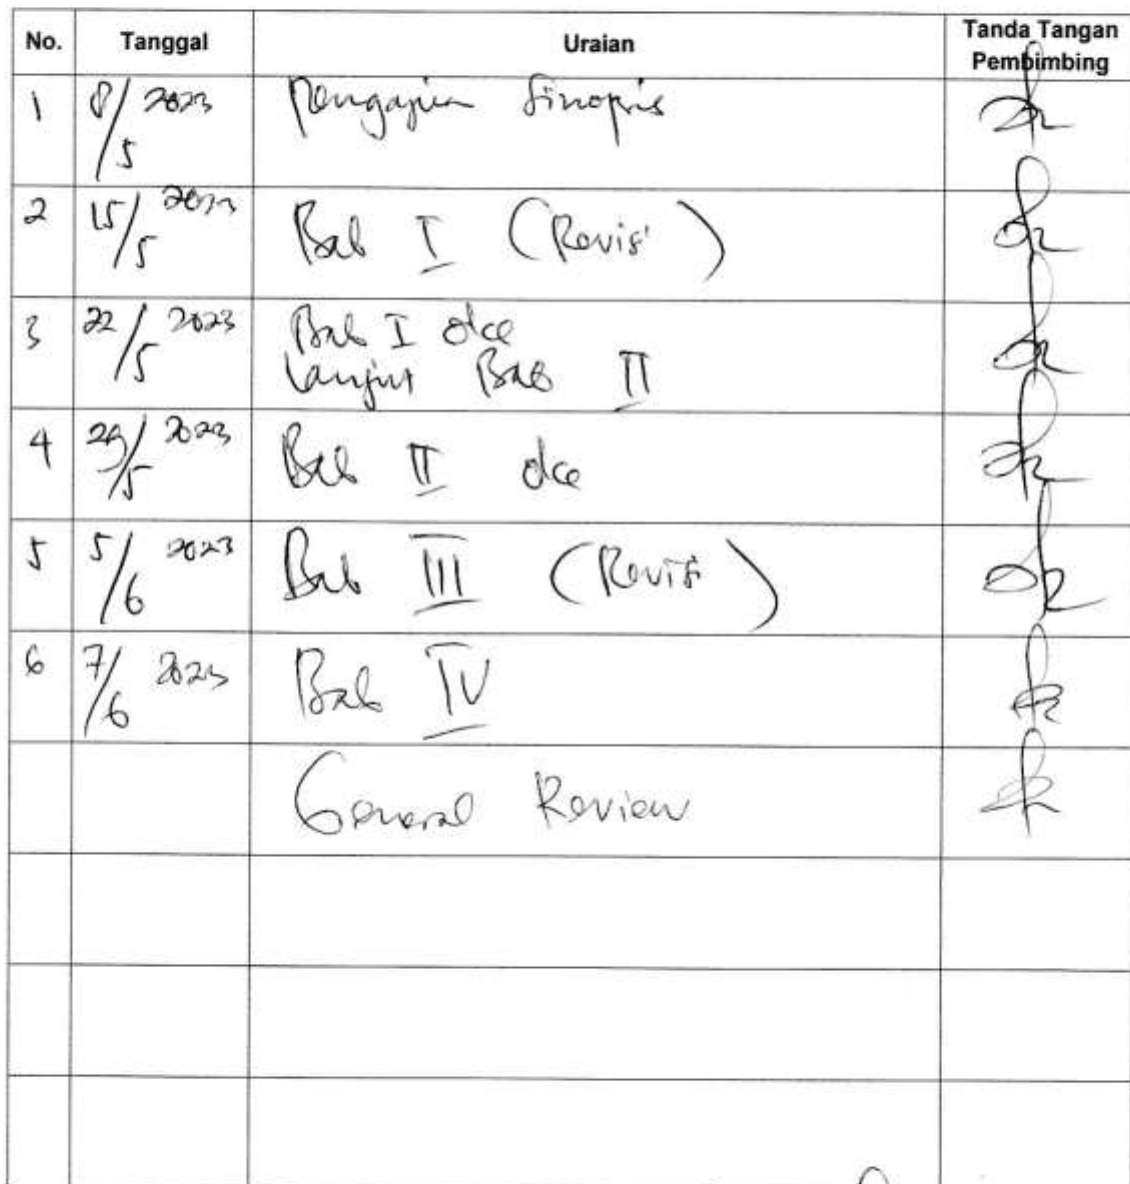 No. Tanggal Uraian Tanda Tangan
Pembimbing
1 8/5 2023 Pengajuan Sinopsis
2 15/5 2023 Bab I (Revisi)
3 22/5 2023 Bab I oke
lanjut Bab II
4 29/5 2023 Bab II oke
5 5/6 2023 Bab III (Revisi)
6 7/6 2023 Bab IV
General Review